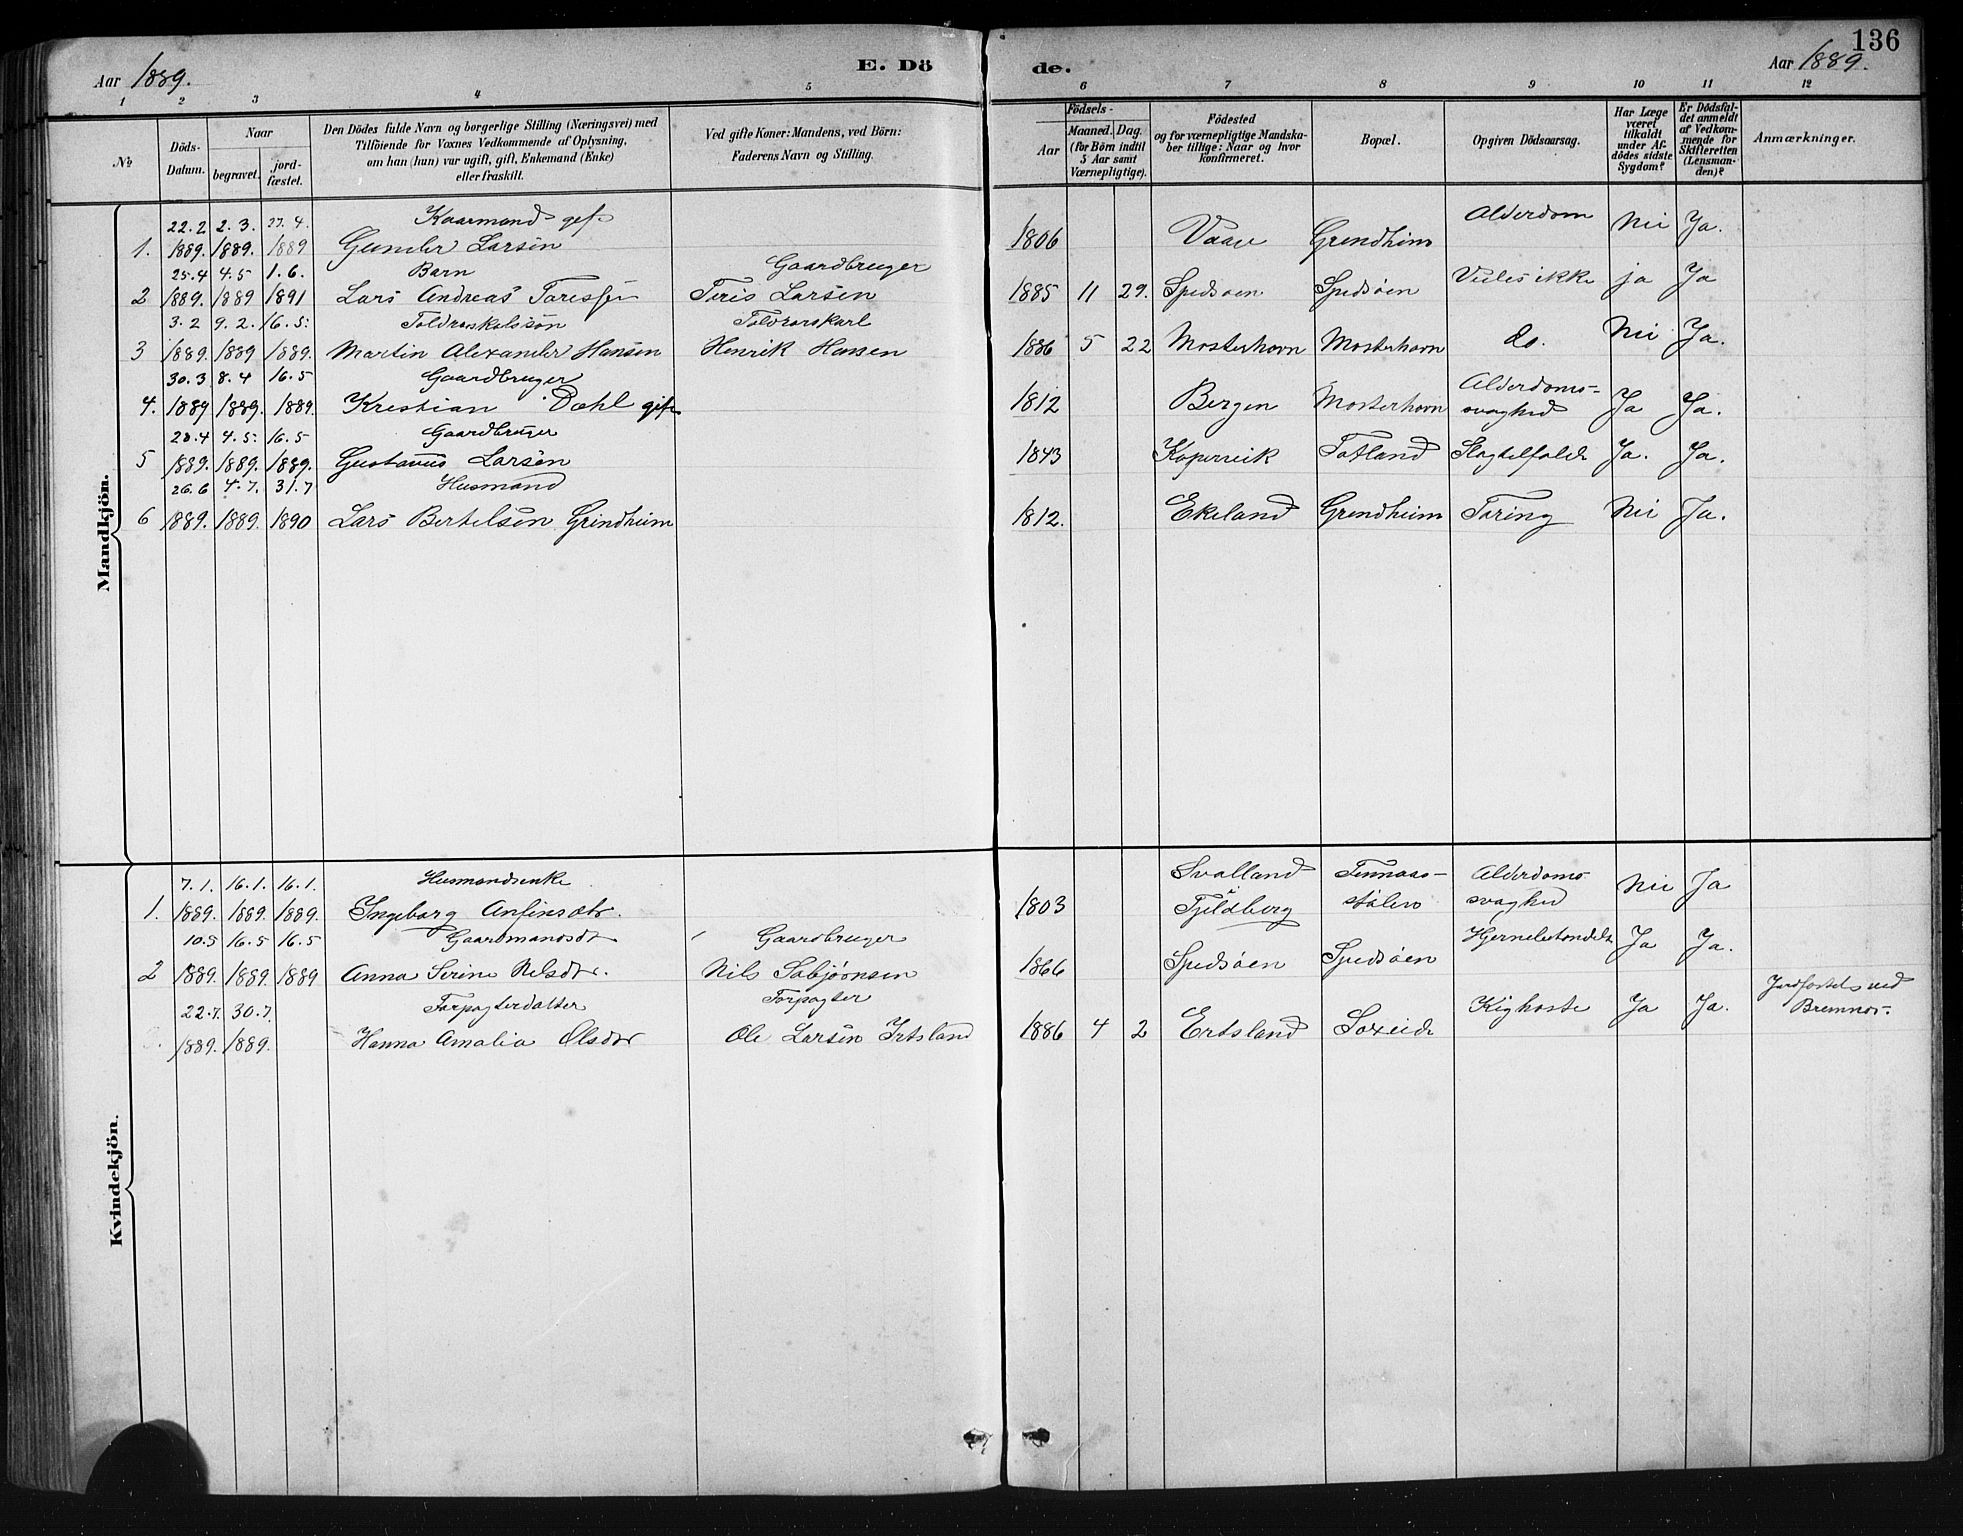 136
Aar 1889.
E. Dö
de.
Aar 1889.
1 2 3 4 5 6 7 8 9 10 11 12
No
Döds-
Datum.
Naar
begravet.
jord-
fæstet.
Den Dödes fulde Navn og borgerlige Stilling (Næringsvei) med
Tilföiende for Voxnes Vedkommende af Oplysning,
om han (hun) var ugift, gift, Enkemand (Enke)
eller fraskilt.
Ved gifte Koner: Mandens, ved Börn:
Faderens Navn og Stilling.
Födsels-
Aar
Maaned. Dag.
(for Börn indtil
5 Aar samt
Værnepligtige).
Födested
og for værnepligtige Mandska-
ber tillige: Naar og hvor
konfirmeret.
Bopæl.
Opgiven Dödsaarsag.
Har Læge
været
tilkaldt
under Af-
dödes sidste
Sygdom?
Er Dödsfal-
det anmeldt
af Vedkom-
mende for
Skifteretten
(Lensman-
den)?
Anmærkninger.
Mandkjön.
22.2 2.3. 27.4. Kaarmand gift Alderdom
1. 1889. 1889. 1889 Gunder Larsen 1806 Grendheim Nei Ja.
25.4 4.5 1.6. Barn Gaardbruger
2 1889. 1889 1891 Lars Andreas Larsen 1885 11 29. Spedsöen Spedsöen ikke ja Ja
3.2 9.2. 16.5.
3 1889. 1889 1889. Martin Alexander Hansen Henrik Hansen 1886 5 22 Mosterhavn Mosterhavn do. Nei Ja.
30.3 8.4 16.5 Gaardbruger Alderdoms-
4. 1889 1889. 1889. Kristian Dahl gift 1812 Bergen Mosterhavn svaghed Ja Ja.
28.4 4.5. 16.5 Gaardbruger
5 1889. 1889. 1889. Gustavus Larsen 1843 Kopervik Totland Ja. Ja.
26.6 4.7. 31.7 Husmand
6 1889. 1889. 1890 Lars Bertelsen Grindheim 1812. Ekeland Grendheim Tæring Nei Ja.
Kvindekjön.
7.1. 16.1. 16.1. Husmandsenke Svalland Alderdoms
1. 1889. 1889. 1889. Ingeborg Anfinsdtr. 1803 Fjeldberg svaghed Nei Ja
10.5 16.5 16.5 Gaardmandsdt Gaardbruger
2 1889. 1889. 1889 Anna Serine Nelsdtr. Nils Sabjörnsen 1866 Spedsöen Spedsöen Ja Ja.
22.7. 30.7. Forpagterdatter Forpagter
1889. 1889. Hanna Amalia Olsdtr Ole Larsen Irtsland 1886 4 2 Ertsland Kighoste Ja Ja. Jordfæstet ved
Bremnes.